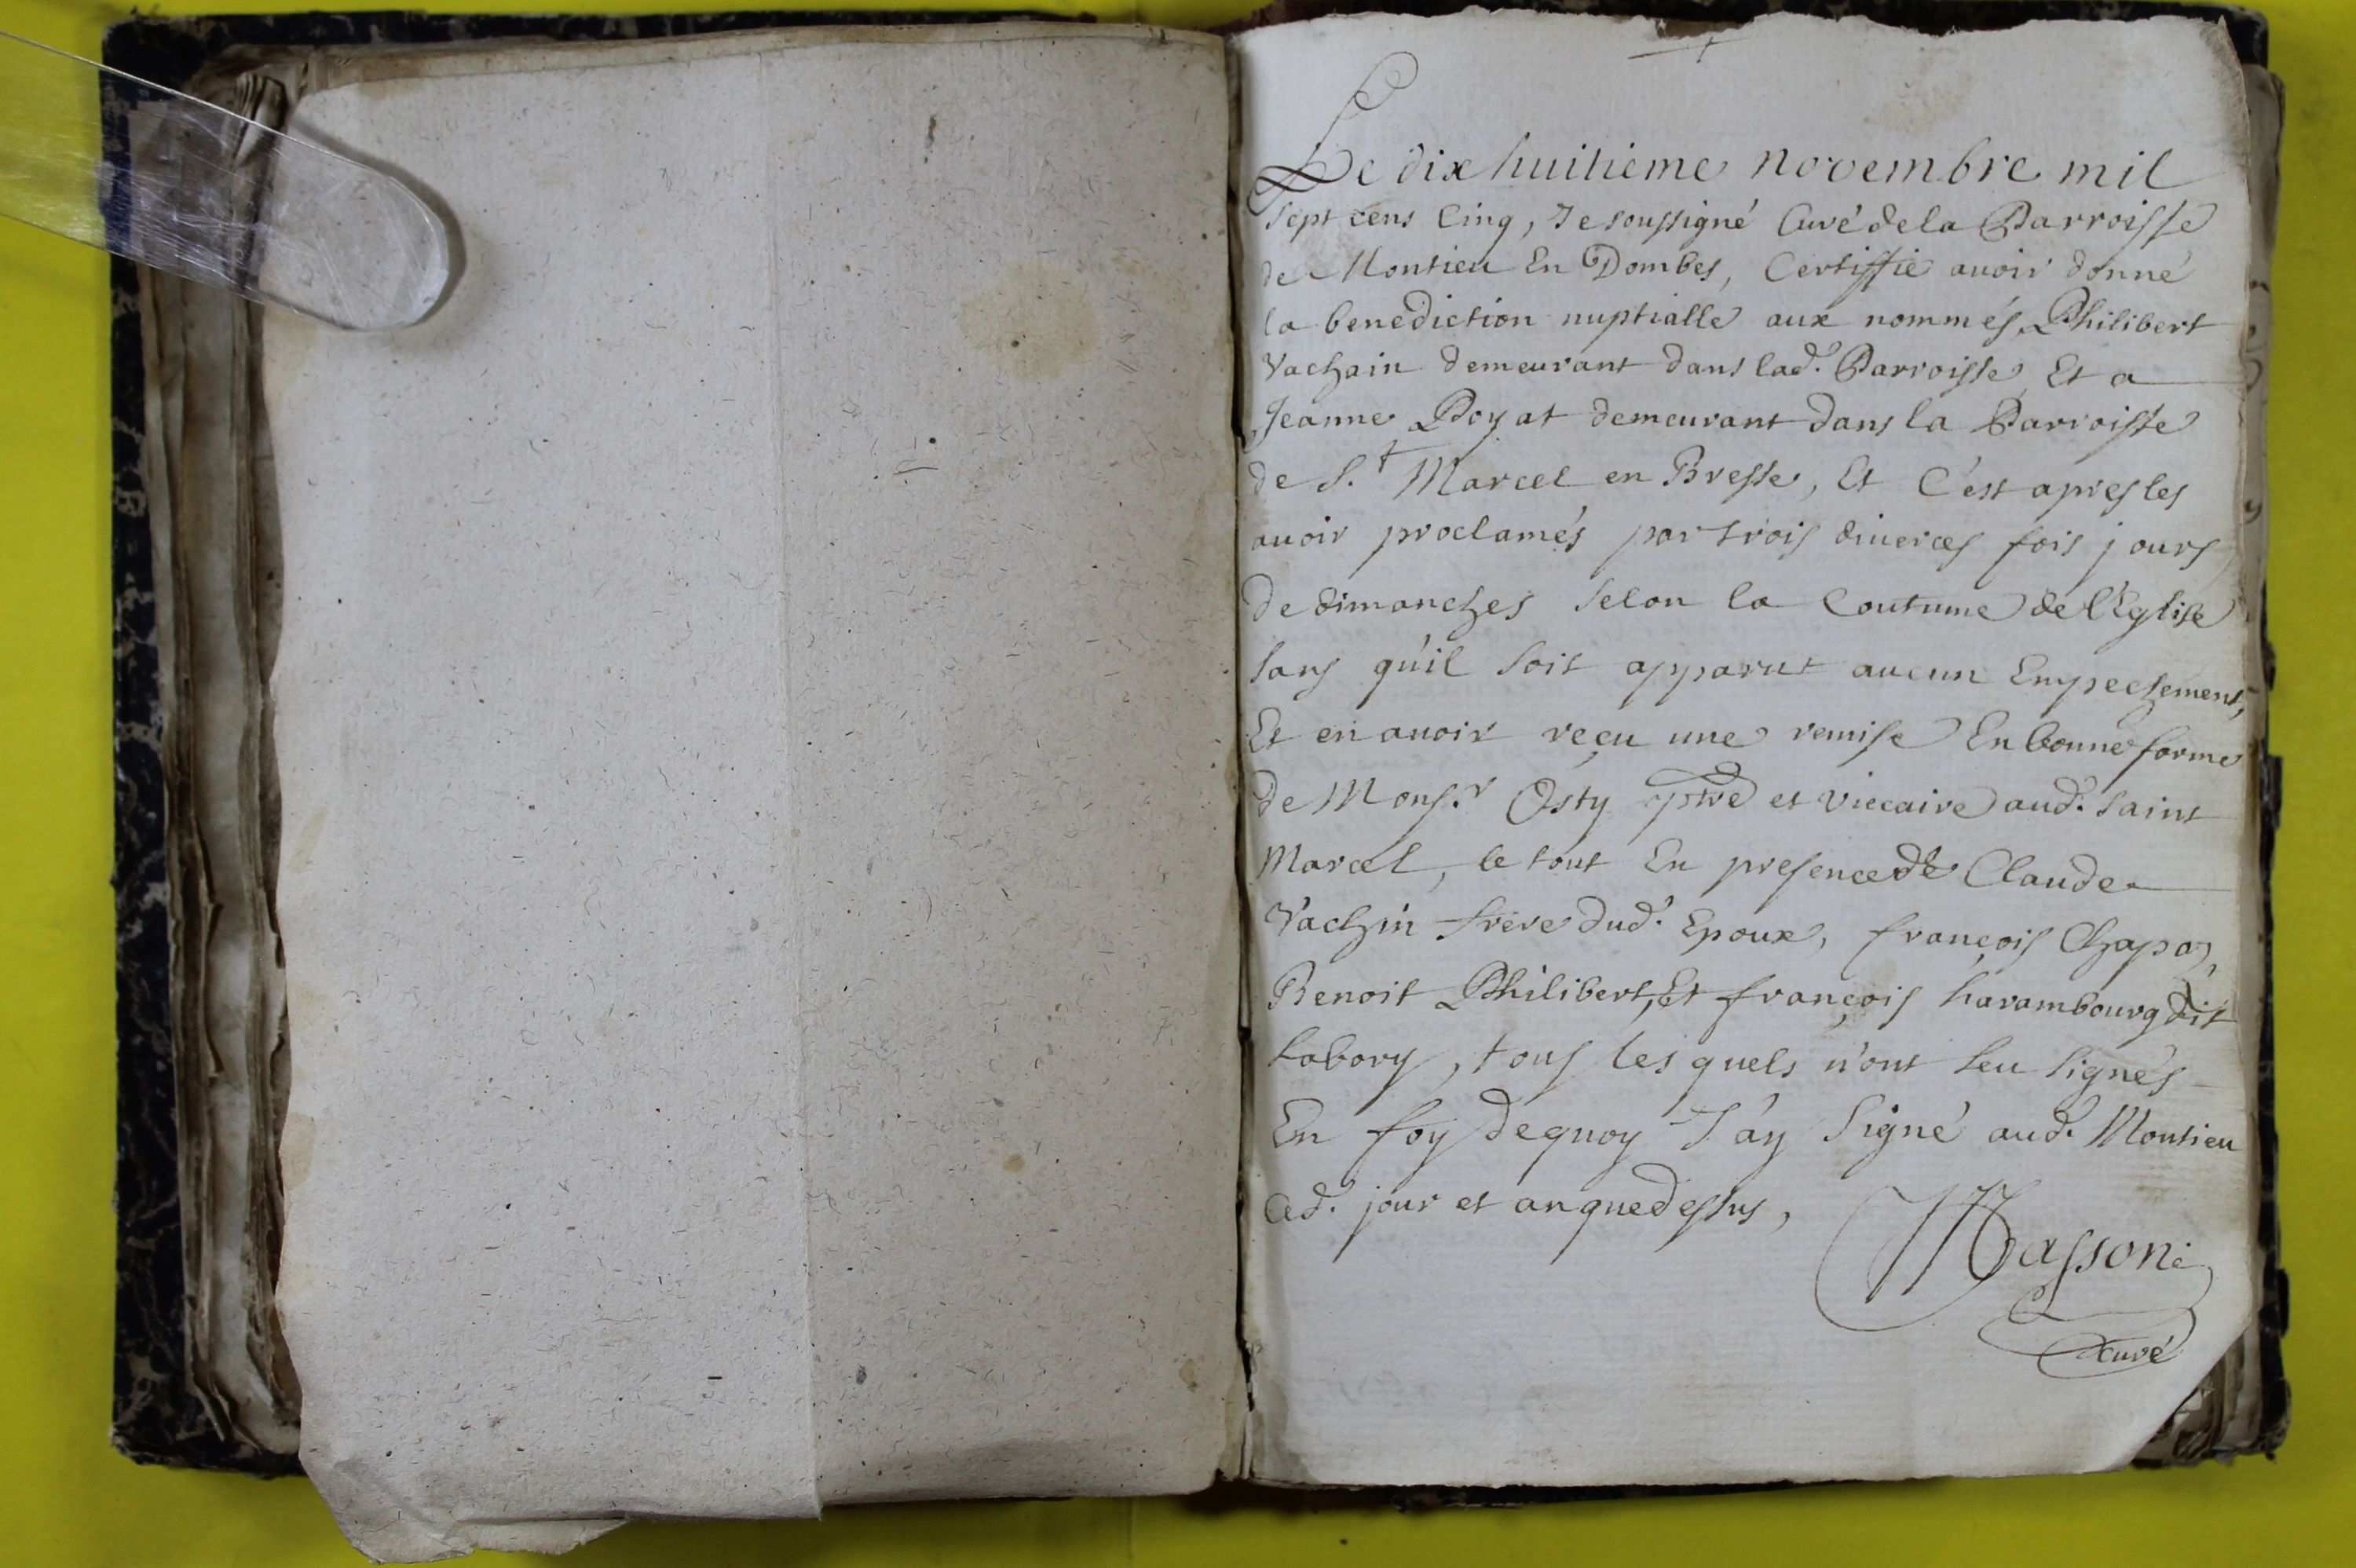 Le dix huitieme novembre mil
sept cens Cinq, Je soussigné Curé de la Parroisse
de Montieu En Dombes, Certiffie avoir donné
la benediction nuptialle aux nommés Philibert
Vachain demeurant dans lad. Parroisse Et a
Jeanne Poyat demeurant dans la Parroisse
de S.t Marcel en Bresse, Et C'est apres les
auoir proclamés par trois diuerces fois jours
de dimanches selon la Coutume de l'Eglise
sans qu'il soit apparut aucun Empechement,
Et en auoir reçu une remise En bonne forme
de Mons.r Osty ptre et viecaire aud. saint
Marcel, le tout En presence de Claude
Vachin frere dud. Epoux, françois Chapaz
Benoit Philibert, Et françois harambourg dit
Labory, tous les quels n'ont seu signés
En foy dequoy J'ay Signé aud. Montieu
Ced. jour et an que dessus,
Masson
Curé